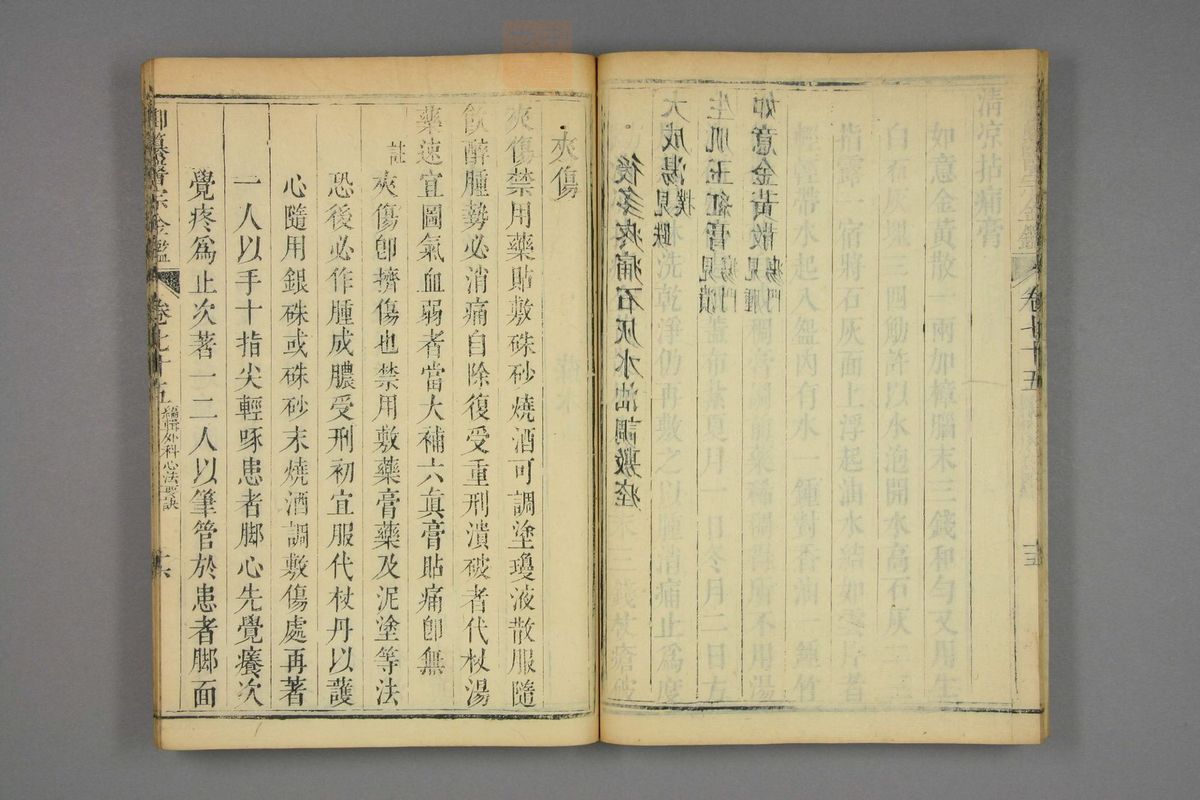 卷七十五
十五
清凉拈痛膏
如意金黃散一兩加樟腦末三錢和勻又用生
白石灰三四觔許以水泡開水高石灰二
指露一宿將石灰面上浮起油水結如雲片者
輕輕帶水起入盌內有水一鍾對香油一鍾竹
稠膏調前藥稀稠得所不用湯
如意金黃散見腫瘍門
蓋布蒸夏月一日冬月二日方
生肌玉紅膏見潰瘍門
洗乾淨仍再敷之以腫消痛止爲度
大成湯見撲跌
三錢杖瘡破
後多疼痛石灰水油調敷痊
夾傷
夾傷禁用藥貼敷硃砂燒酒可調塗瓊液散服隨
飲醉腫勢必消痛自除復受重刑潰破者代杖湯
藥速宜圖氣血弱者當大補六眞膏貼痛卽無
註
夾傷卽擠傷也禁用敷藥膏藥及泥塗等法
恐後必作腫成膿受刑初宜服代杖丹以護
心隨用銀硃或硃砂末燒酒調敷傷處再著
一人以手十指尖輕啄患者脚心先覺癢次
覺疼爲止次著一二人以筆管於患者脚面
御纂醫宗金鑑
卷七十五
編輯外科心法要訣
十六